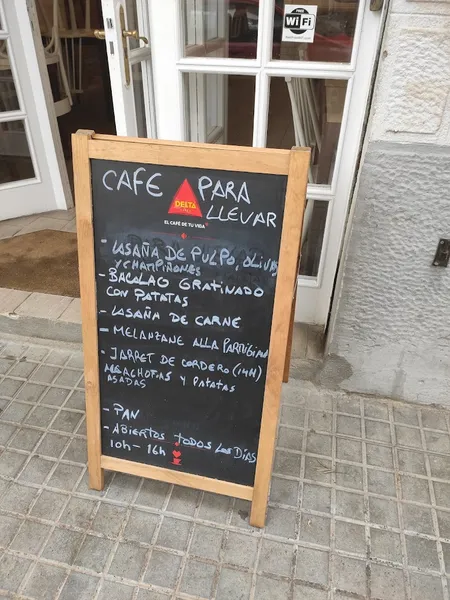 DELTA
WiFi
CAFE PARA
DELTA
LLEVAR
EL CAFÉ DE TU VIDA
- LASAÑA DE PULPO, OLIVAS
Y CHAMPIÑONES
- BACALAO GRATINADO
CON PATATAS
- LASAÑA DE CARNE
- MELANZANE ALLA PARMIGIANA
- JARRET DE CORDERO (14H)
Y PATATAS
ASADAS
- PAN
- ABIERTOS TODOS LOS DIAS
10h - 16h